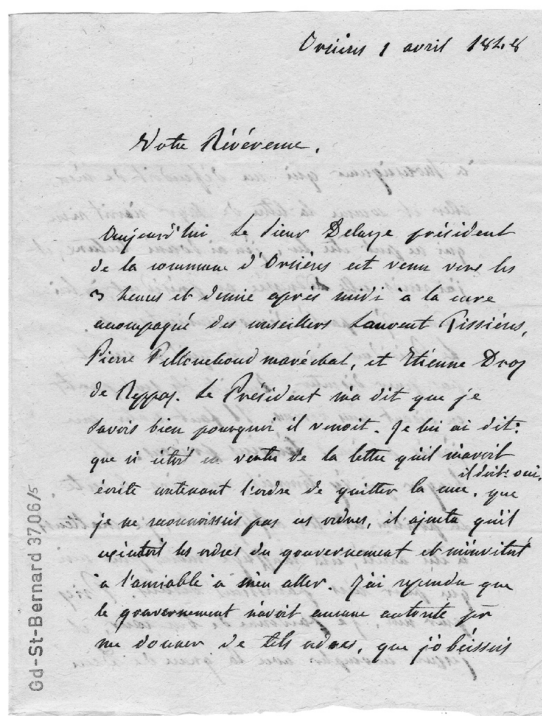 Orsières 1 avril 1848
Votre Révérence,
Aujourd'hui le sieur Delasse président
de la commune d'Orsières est venu vers les
3 heures et demie après midi à la cure
accompagné des conseillers Laurent Tissières,
Pierre Pellouchoud maréchal, et Etienne Droz
de Reppaz. Le Président m'a dit que je
savois bien pourquoi il venoit. Je lui ai dit:
que si c'etoit en vertu de la lettre qu'il m'avoit
il doit: oui,
écrite contenant l'ordre de quitter la cure, que
je ne reconnoissois pas ces ordres, il ajouta qu'il
executoit les ordres du gouvernement et m'invitoit
à l'amiable à m'en aller. J'ai repondu que
le gouvernement n'avoit aucune autorité pr
me donner de tels ordres, que j'obeissois
Gd-St-Bernard 3706/5